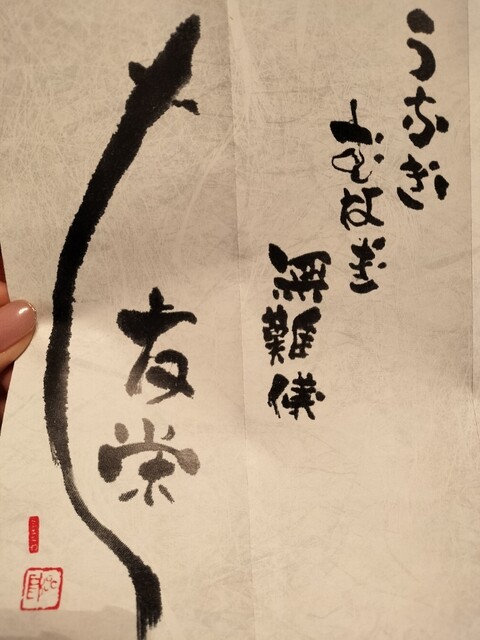 うなぎ
むなぎ
無難儀
友栄